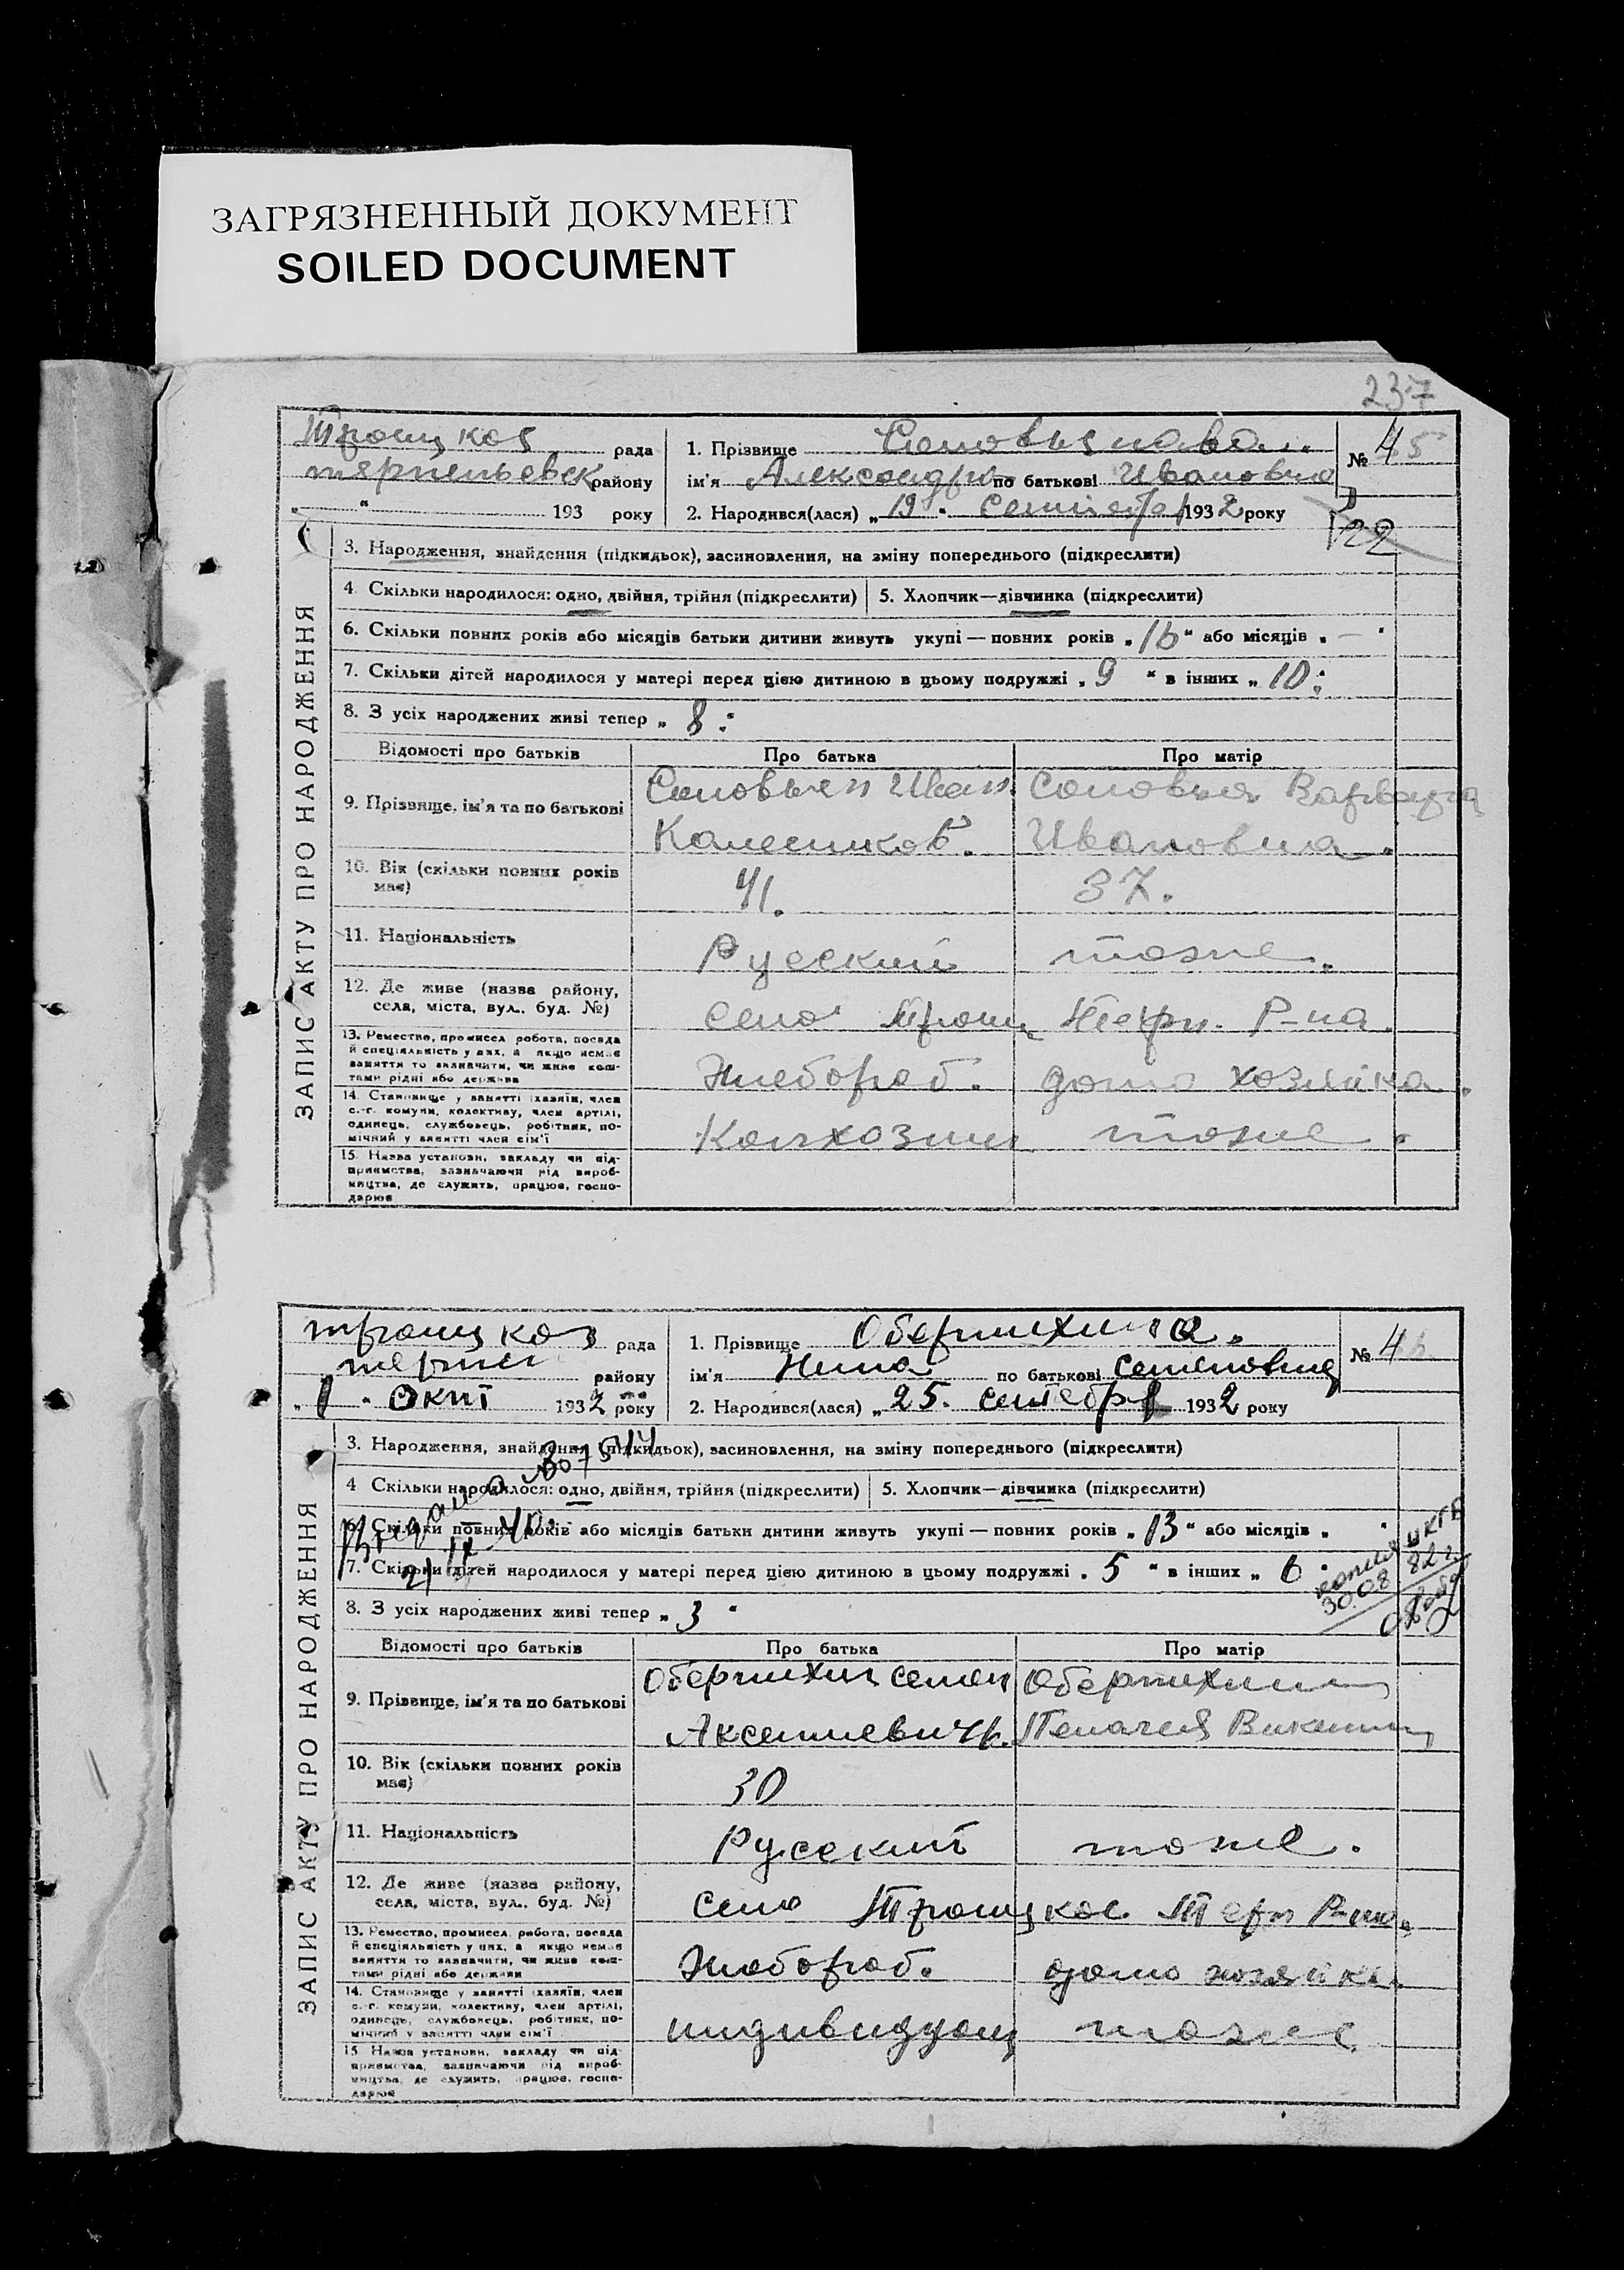 ЗАГРЯЗНЕННЫЙ ДОКУМЕНТ
SOILED DOCUMENT
237
ЗАПИС АКТУ ПРО НАРОДЖЕННЯ
рада
району
193 року
1. Прізвище
№ 45
ім'я Александра по батькові Ивановна
2. Народився(лася) „19" 1932 року
22
3. Народження, знайдення (підкидьок), засиновлення, на зміну попереднього (підкреслити)
4 Скільки народилося: одно, двійня, трійня (підкреслити)
5. Хлопчик—дівчинка (підкреслити)
6. Скільки повних років або місяців батьки дитини живуть укупі — повних років „16" або місяців „—"
7. Скільки дітей народилося у матері перед цією дитиною в цьому подружжі „9" в інших „10"
8. З усіх народжених живі тепер „8"
Відомості про батьків Про батька Про матір
9. Прізвище, ім'я та по батькові
Иван Варвара
Ивановна.
10. Вік (скільки повних років має) 41. 37.
11. Національність Русский тоже.
12. Де живе (назва району, села, міста, вул., буд. №)
село Троиц Терн. Р-на.
13. Ремество, промисел, робота, посада й спеціяльність у них, а якщо немає заняття то зазначити, чи живе коштами рідні або держави
Хлебороб. домо хозяйка.
14. Становище у занятті (хазяїн, член с.-г. комуни, колективу, член артілі, одинець, службовець, робітник, помічний у занятті член сім'ї
Колхозник тоже.
15. Назва установи, закладу чи підприємства, зазначаючи рід виробництва, де служить, працює, господарює
ЗАПИС АКТУ ПРО НАРОДЖЕННЯ
рада
району
„1" окт 1932 року
1. Прізвище Обертихина.
№ 46
ім'я Нина по батькові Семеновна
2. Народився(лася) „25. сентебря 1932 року
3. Народження, знайдення (підкидьок), засиновлення, на зміну попереднього (підкреслити)
4 Скільки народилося: одно, двійня, трійня (підкреслити)
5. Хлопчик—дівчинка (підкреслити)
6. Скільки повних років або місяців батьки дитини живуть укупі — повних років „13" або місяців „ "
7. Скільки дітей народилося у матері перед цією дитиною в цьому подружжі „5" в інших „6"
8. З усіх народжених живі тепер „3"
копия
30.08 82 г.
Відомості про батьків Про батька Про матір
9. Прізвище, ім'я та по батькові
Обертихин Семен Обертихина
Пелагея
10. Вік (скільки повних років має) 30
11. Національність Русский тоже.
12. Де живе (назва району, села, міста, вул., буд. №)
село Троицкое Терн Р-на.
13. Ремество, промисел, робота, посада й спеціяльність у них, а якщо немає заняття то зазначити, чи живе коштами рідні або держави
Хлебороб. домо хозяйка.
14. Становище у занятті (хазяїн, член с.-г. комуни, колективу, член артілі, одинець, службовець, робітник, помічний у занятті член сім'ї
тоже
15. Назва установи, закладу чи підприємства, зазначаючи рід виробництва, де служить, працює, господарює